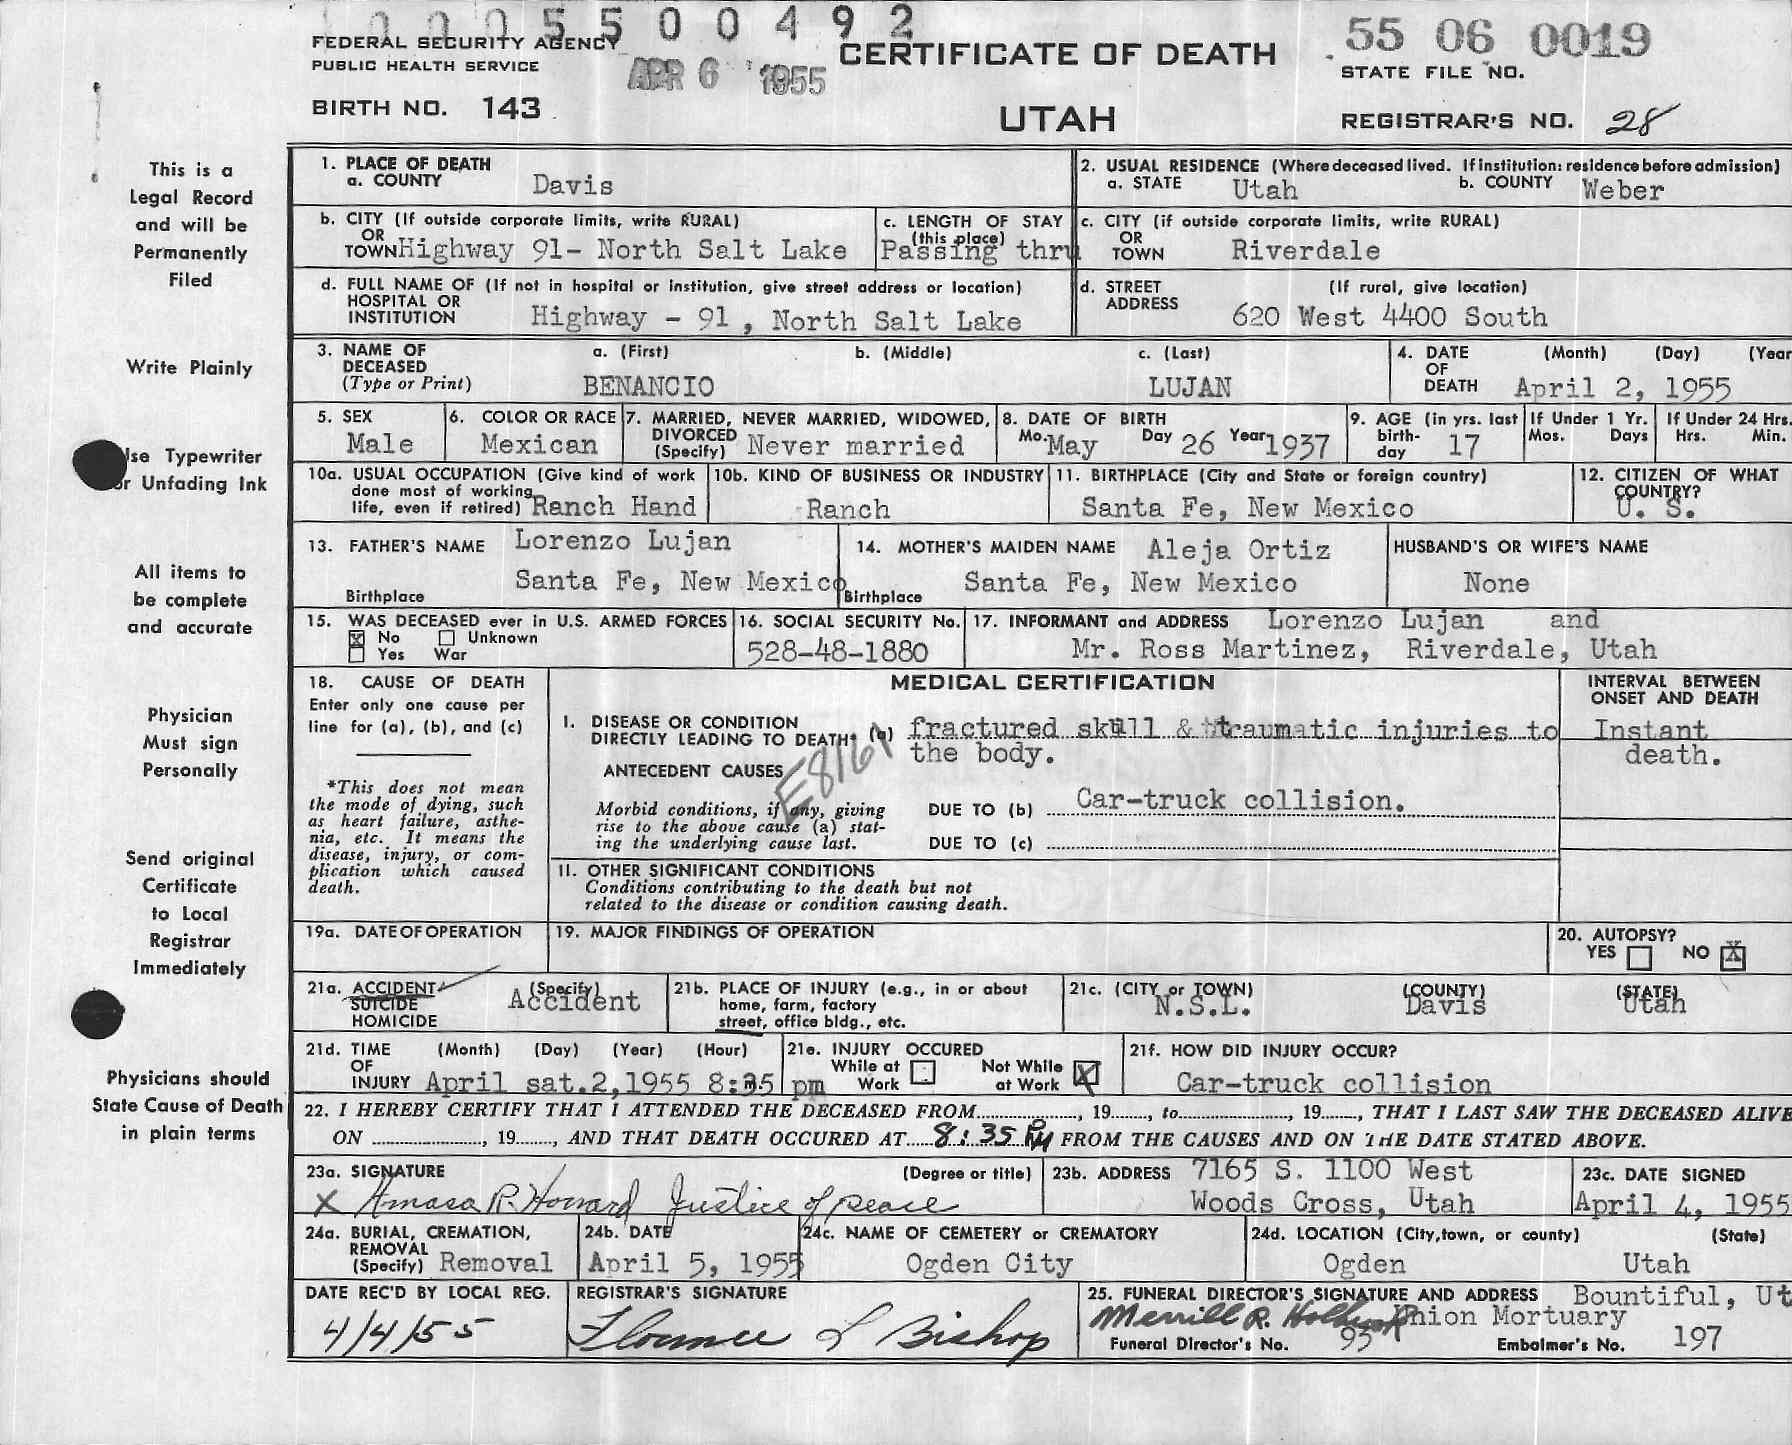 0005500492
55 06 0019
FEDERAL SECURITY AGENCY
PUBLIC HEALTH SERVICE
APR 6 1955
CERTIFICATE OF DEATH
STATE FILE NO.
BIRTH NO. 143
UTAH
REGISTRAR'S NO. 28
This is a
Legal Record
and will be
Permanently
Filed
Write Plainly
Use Typewriter
or Unfading Ink
All items to
be complete
and accurate
Physician
Must sign
Personally
Send original
Certificate
to Local
Registrar
Immediately
Physicians should
State Cause of Death
in plain terms
1. PLACE OF DEATH
a. COUNTY Davis
2. USUAL RESIDENCE (Where deceased lived. If institution: residence before admission)
a. STATE Utah b. COUNTY Weber
b. CITY (If outside corporate limits, write RURAL)
OR
TOWN Highway 91- North Salt Lake
c. LENGTH OF STAY
(this place)
Passing thru
c. CITY (if outside corporate limits, write RURAL)
OR
TOWN Riverdale
d. FULL NAME OF (If not in hospital or institution, give street address or location)
HOSPITAL OR
INSTITUTION Highway - 91, North Salt Lake
d. STREET (If rural, give location)
ADDRESS 620 West 4400 South
3. NAME OF DECEASED
(Type or Print)
a. (First) b. (Middle) c. (Last)
BENANCIO LUJAN
4. DATE (Month) (Day) (Year
OF
DEATH April 2, 1955
5. SEX
Male
6. COLOR OR RACE
Mexican
7. MARRIED, NEVER MARRIED, WIDOWED,
DIVORCED
(Specify) Never married
8. DATE OF BIRTH
Mo. May Day 26 Year 1937
9. AGE (in yrs. last
birth-
day 17
If Under 1 Yr.
Mos. Days
If Under 24 Hrs.
Hrs. Min.
10a. USUAL OCCUPATION (Give kind of work
done most of working
life, even if retired) Ranch Hand
10b. KIND OF BUSINESS OR INDUSTRY
Ranch
11. BIRTHPLACE (City and State or foreign country)
Santa Fe, New Mexico
12. CITIZEN OF WHAT
COUNTRY?
U. S.
13. FATHER'S NAME Lorenzo Lujan
Birthplace Santa Fe, New Mexico
14. MOTHER'S MAIDEN NAME Aleja Ortiz
Birthplace Santa Fe, New Mexico
HUSBAND'S OR WIFE'S NAME
None
15. WAS DECEASED ever in U.S. ARMED FORCES
X No Unknown
Yes War
16. SOCIAL SECURITY No.
528-48-1880
17. INFORMANT and ADDRESS Lorenzo Lujan and
Mr. Ross Martinez, Riverdale, Utah
18. CAUSE OF DEATH
Enter only one cause per
line for (a), (b), and (c)
*This does not mean
the mode of dying, such
as heart failure, asthe-
nia, etc. It means the
disease, injury, or com-
plication which caused
death.
MEDICAL CERTIFICATION
INTERVAL BETWEEN
ONSET AND DEATH
I. DISEASE OR CONDITION
DIRECTLY LEADING TO DEATH* (a) fractured skull & traumatic injuries to
the body.
Instant
death.
ANTECEDENT CAUSES
Morbid conditions, if any, giving
rise to the above cause (a) stat-
ing the underlying cause last.
DUE TO (b) Car-truck collision.
DUE TO (c)
II. OTHER SIGNIFICANT CONDITIONS
Conditions contributing to the death but not
related to the disease or condition causing death.
19a. DATE OF OPERATION
19. MAJOR FINDINGS OF OPERATION
20. AUTOPSY?
YES NO X
21a. ACCIDENT
SUICIDE
HOMICIDE
(Specify)
Accident
21b. PLACE OF INJURY (e.g., in or about
home, farm, factory
street, office bldg., etc.
21c. (CITY or TOWN) (COUNTY) (STATE)
N.S.L. Davis Utah
21d. TIME (Month) (Day) (Year) (Hour)
OF
INJURY April sat.2,1955 8:35 pm
21e. INJURY OCCURED
While at Work Not While at Work X
21f. HOW DID INJURY OCCUR?
Car-truck collision
22. I HEREBY CERTIFY THAT I ATTENDED THE DECEASED FROM , 19 , to , 19 , THAT I LAST SAW THE DECEASED ALIVE
ON , 19 , AND THAT DEATH OCCURED AT 8:35 PM FROM THE CAUSES AND ON THE DATE STATED ABOVE.
23a. SIGNATURE (Degree or title)
X Amasa R. Howard Justice of peace
23b. ADDRESS 7165 S. 1100 West
Woods Cross, Utah
23c. DATE SIGNED
April 4, 1955
24a. BURIAL, CREMATION,
REMOVAL
(Specify) Removal
24b. DATE
April 5, 1955
24c. NAME OF CEMETERY or CREMATORY
Ogden City
24d. LOCATION (City, town, or county) (State)
Ogden Utah
DATE REC'D BY LOCAL REG.
4/4/55
REGISTRAR'S SIGNATURE
Florence L Bishop
25. FUNERAL DIRECTOR'S SIGNATURE AND ADDRESS Bountiful, Ut
Merrill R. Union Mortuary
Funeral Director's No. 95 Embalmer's No. 197